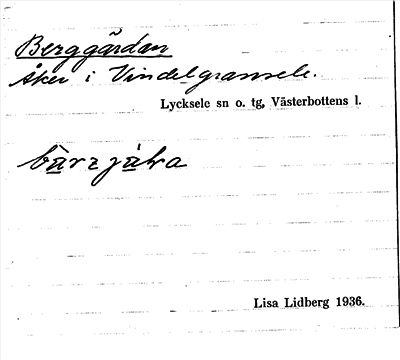 Berggårdan
Åker i Vindelgransele.
Lycksele sn o. tg, Västerbottens l.
Lisa Lidberg 1936.